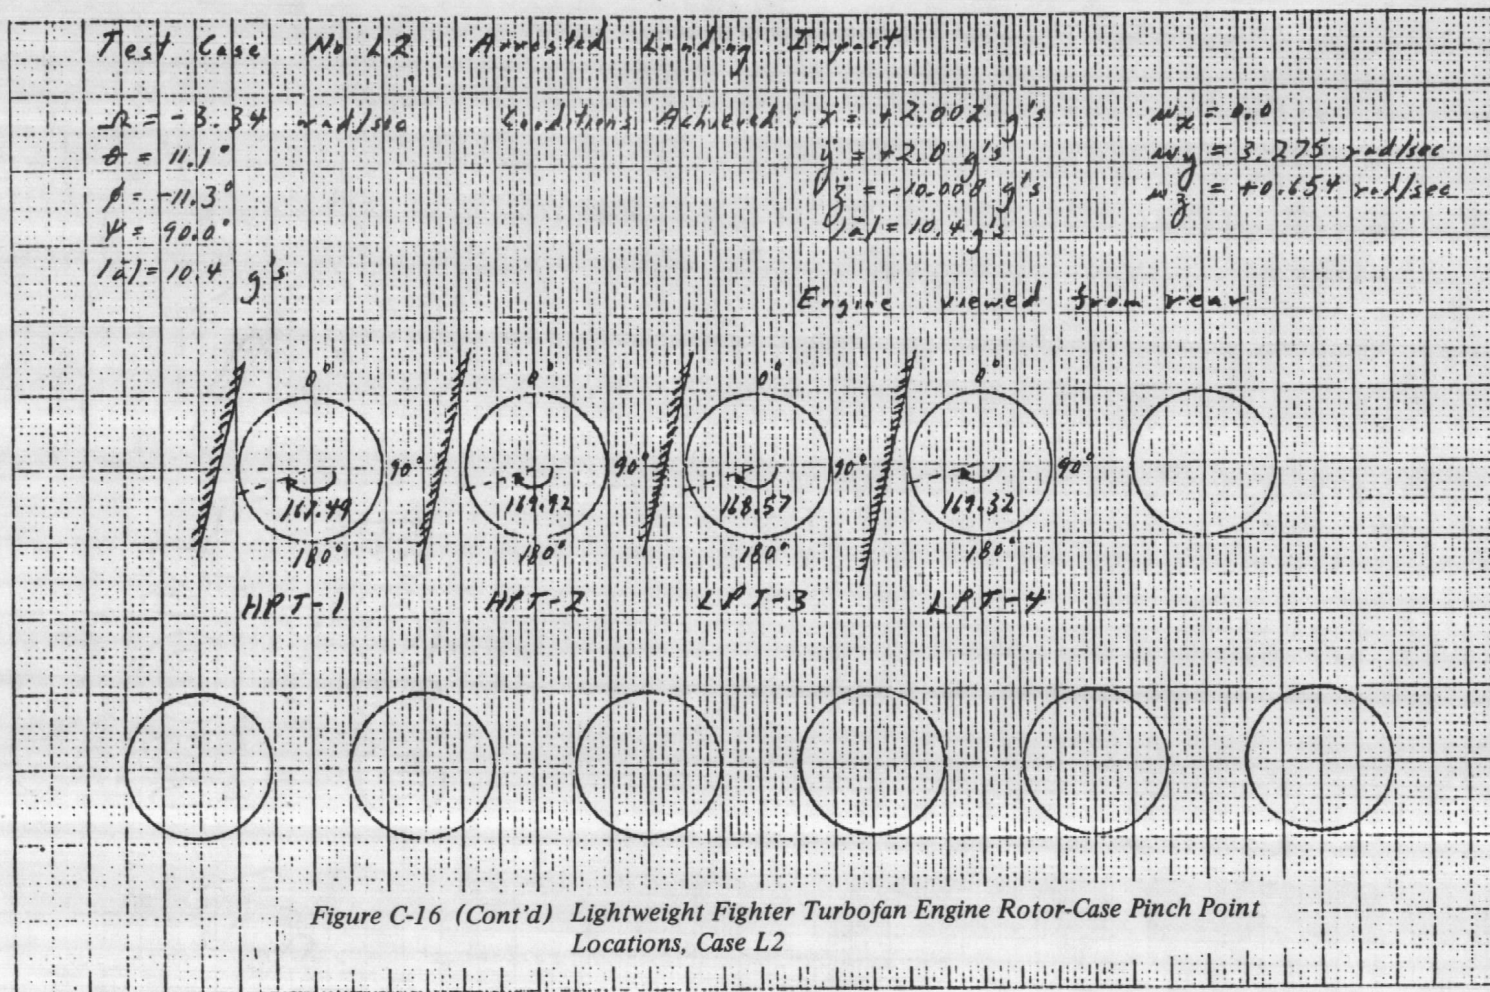 Test Case No L2 Arrested Landing Impact
Ω = -3.34 rad/sec
θ = 11.1°
ϕ = -11.3°
Ψ = 90.0°
|ā| = 10.4 g's
Conditions Achieved: ẍ = +2.002 g's
ÿ = +2.0 g's
z̈ = -10.008 g's
|ā| = 10.4 g's
ωx = 0.0
ωy = 3.275 rad/sec
ωz = +0.654 rad/sec
Engine viewed from rear
0° 0° 0° 0°
90° 90° 90° 90°
167.49 169.92 168.57 169.32
180° 180° 180° 180°
HPT-1 HPT-2 LPT-3 LPT-4
Figure C-16 (Cont'd) Lightweight Fighter Turbofan Engine Rotor-Case Pinch Point
Locations, Case L2